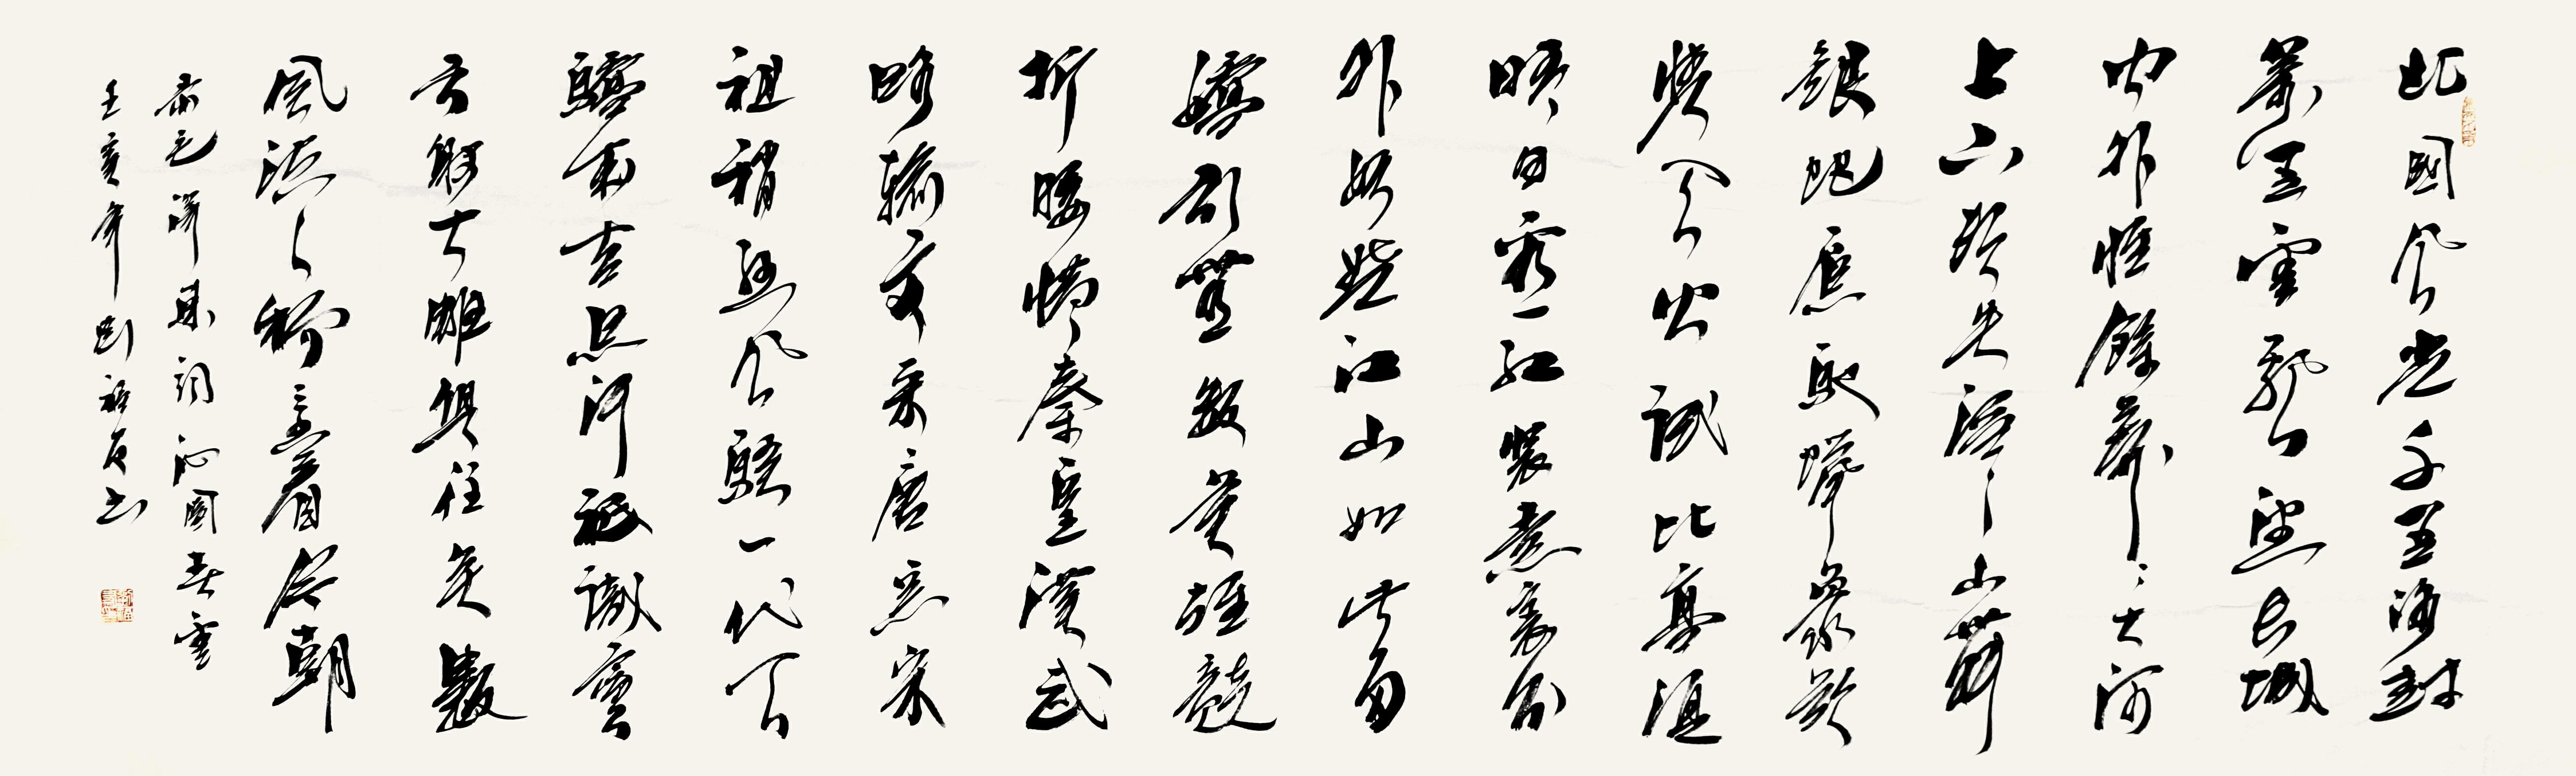 北國風光千里冰封
萬里雪飄望長城
内外惟餘莽〻大河
上下頓失滔〻山舞
銀蛇原馳蠟象欲
與天公試比高須
晴日看紅裝素裹分
外妖嬈江山如此多
嬌引無數英雄競
折腰惜秦皇漢武
略輸文采唐宗宋
祖稍遜風騷一代天
驕成吉思汗祇識彎
弓射大雕俱往矣數
風流人物還看今朝
毛澤東詞沁園春雪
亥年劉書